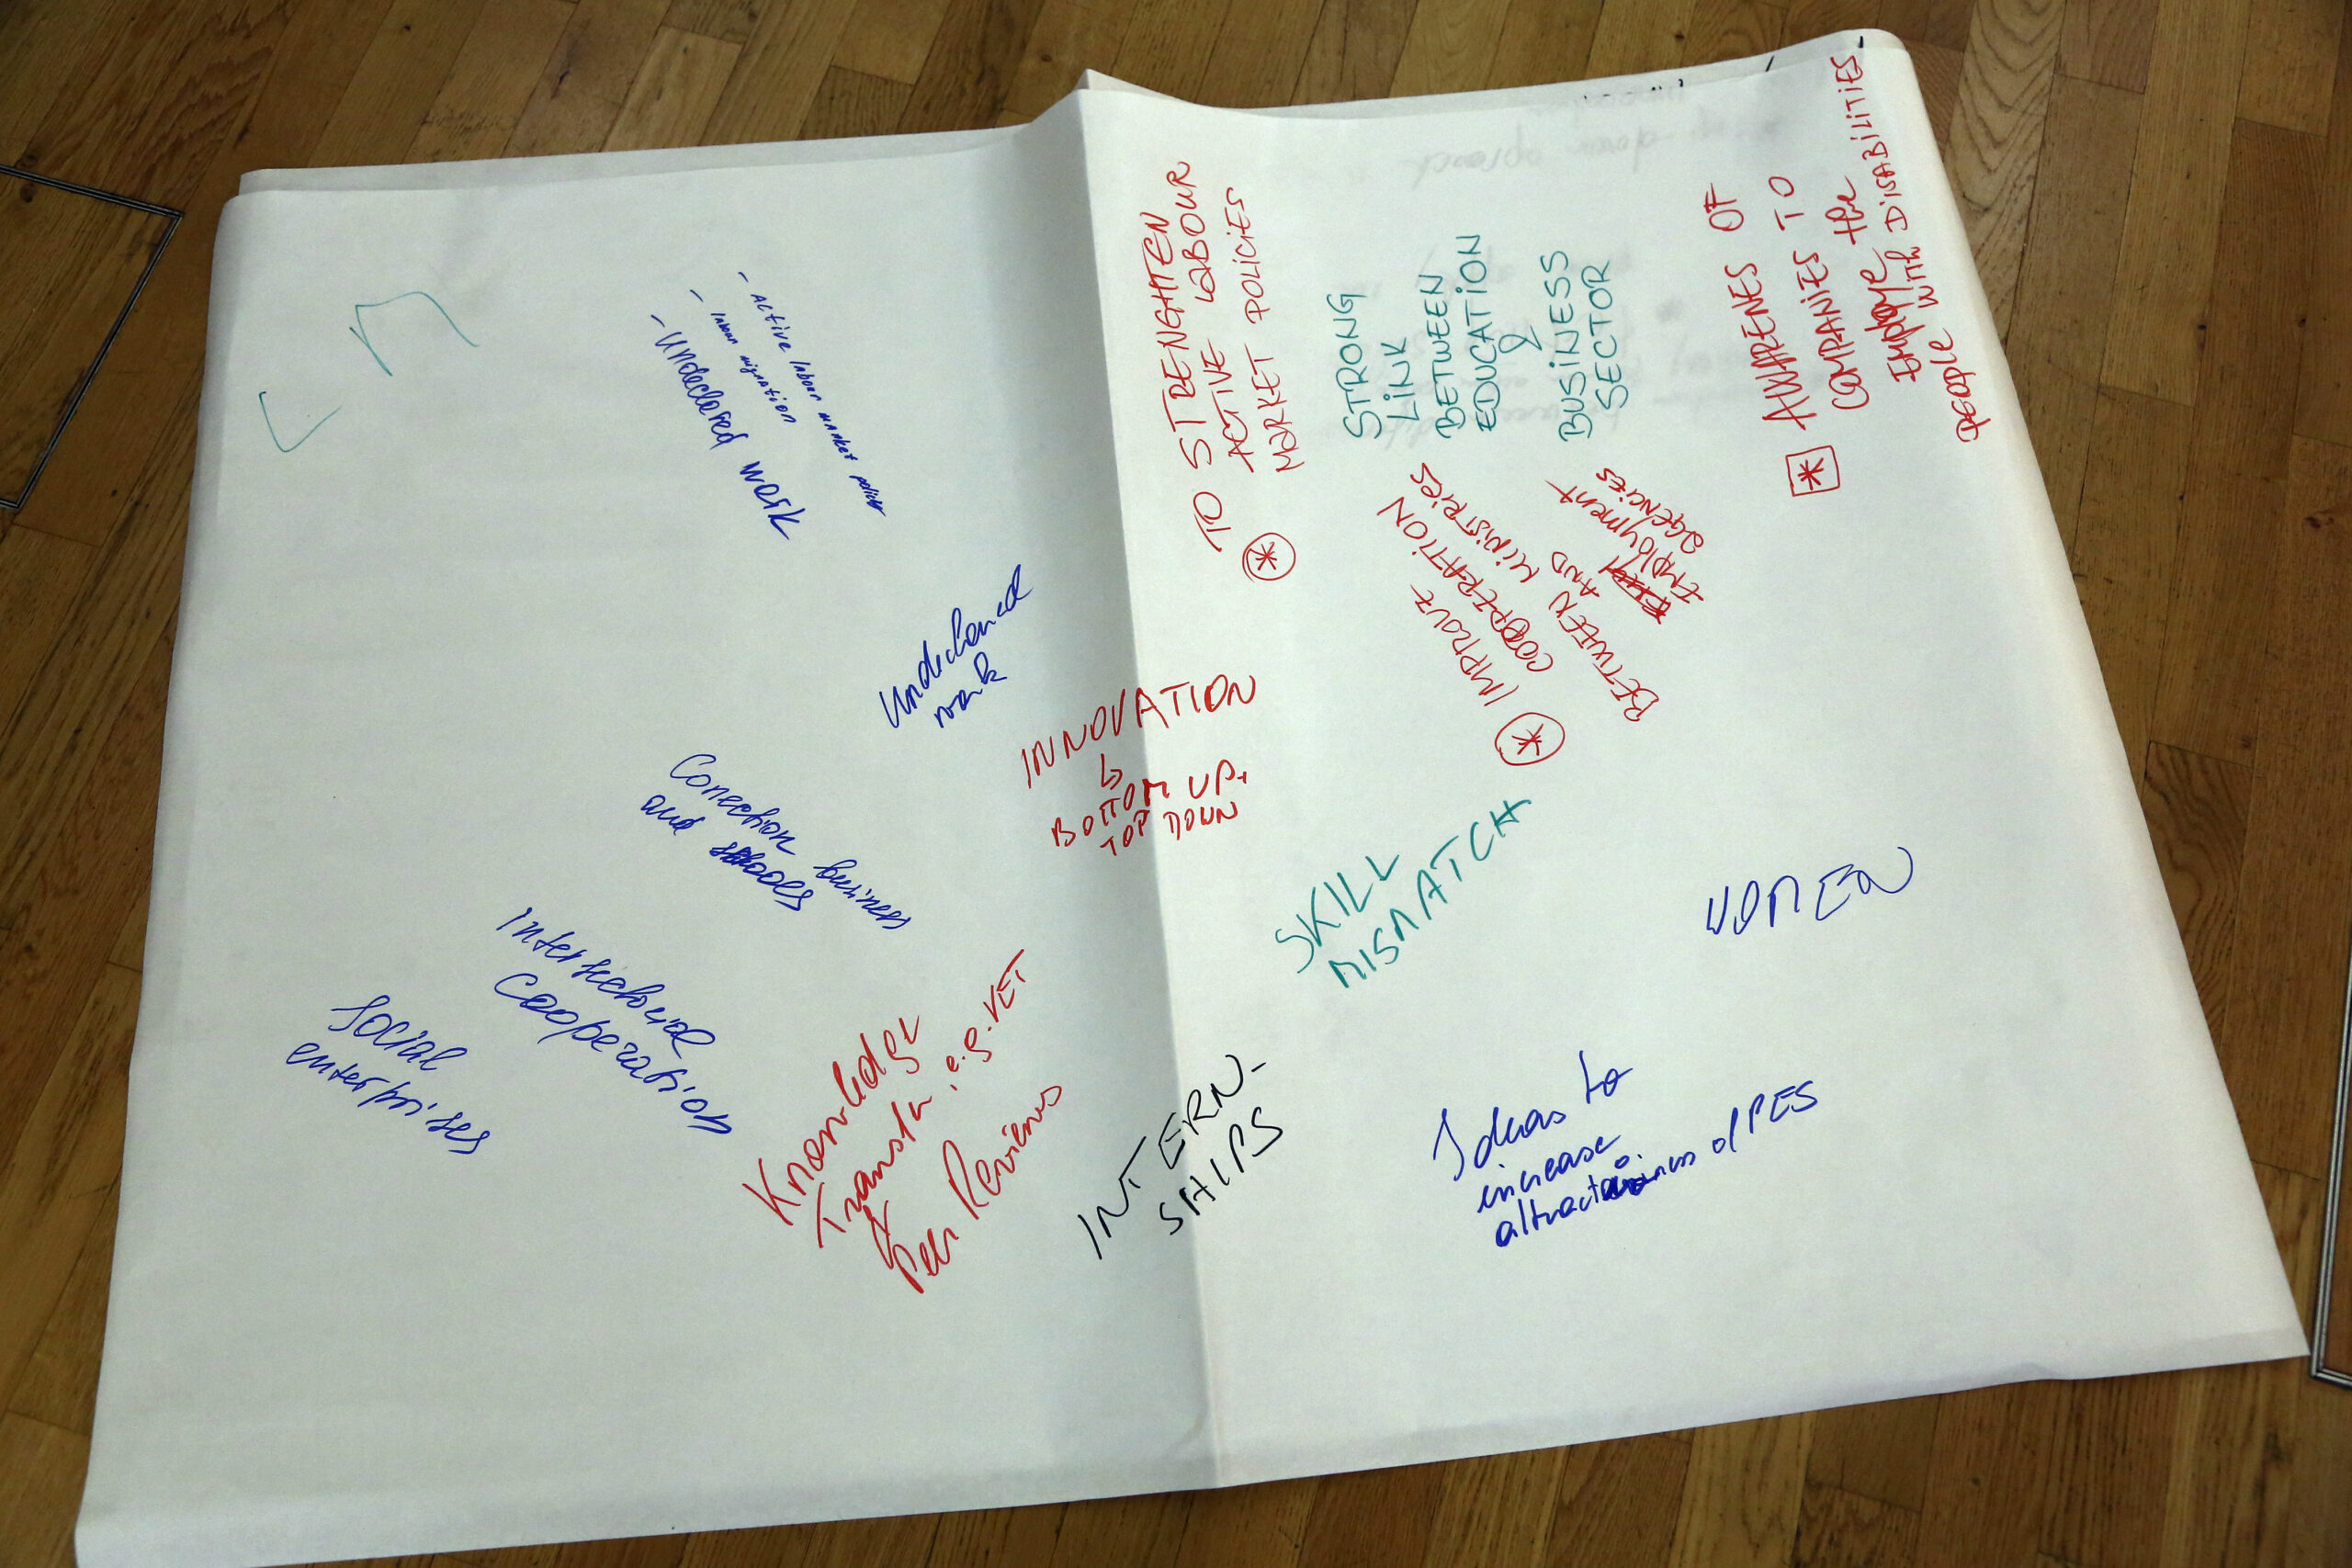 - Active labour market policies
- labour migration
- Undeclared work
Undeclared
work
Conection business
and schools
Intersectorial
cooperation
Social
enterprises
TO STRENGHTEN
ACTIVE LABOUR
MARKET POLICIES
STRONG
LINK
BETWEEN
EDUCATION
&
BUSINESS
SECTOR
AWARENES OF
COMPANIES TO
employe the
people WITH DISABILITIES
IMPROVE
COOPERATION
BETWEEN MINISTRIES
AND
EMPLOYMENT
AGENCIES
INNOVATION
↳ BOTTOM UP+
TOP DOWN
SKILL
MISMATCH
WOMEN
Knowledge
Transfer, e.g. VET
& Peer Reviews
INTERN-
SHIPS
Ideas to
increase
of PES